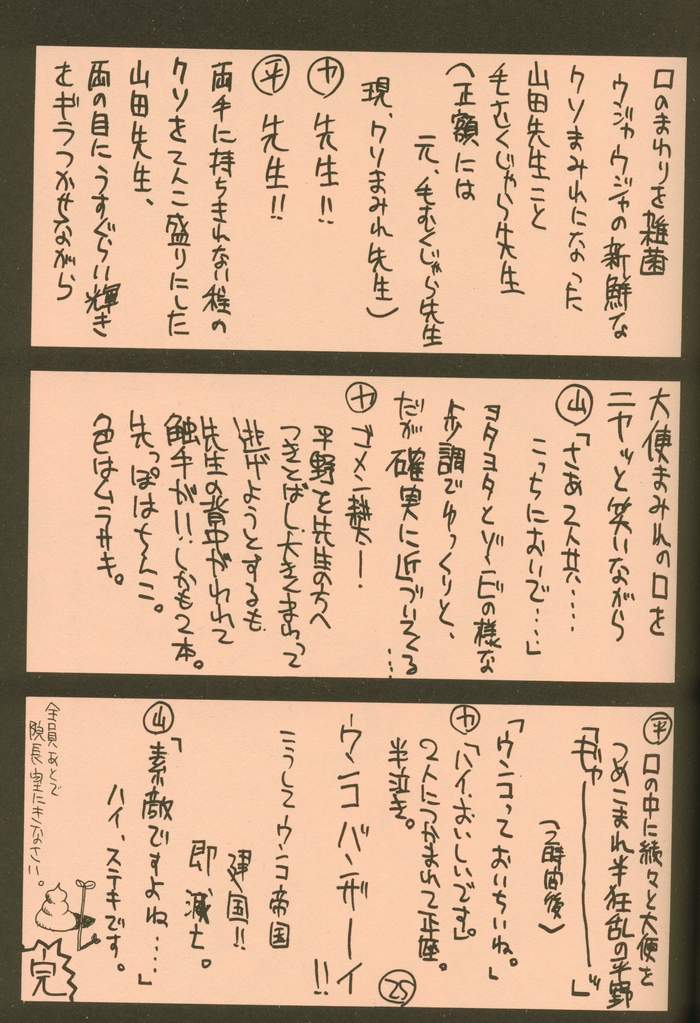 口のまわりを雑菌
ウジャウジャの新鮮な
クソまみれになった
山田先生こと
毛むくじゃら先生
(正額には
元、毛むくじゃら先生
現、クソまみれ先生)
カ 先生!!
平 先生!!
両手に持ちきれない程の
クソをてんこ盛りにした
山田先生、
両の目にうすぐらい輝き
をギラつかせながら
大便まみれの口を
ニヤッと笑いながら
山「さあ2人共‥‥
こっちにおいで‥‥」
ヨタヨタとゾンビの様な
歩調でゆっくりと、
だが確実に近づいてくる…
カ ゴメン
平野を先生の方へ
つきとばし、大きくまわって
逃げようとするも
先生の背中がわれて
触手が!!しかも2本。
先っぽはちんこ。
色はムラサキ。
平 口の中に続々と大便を
つめこまれ半狂乱の平野
「ギャーーーー」
(2時間後)
「ウンコっておいちいね。」
カ「ハイ、おいしいです」。
2人につかまれて正座。
半泣き。
ウンコバンザーイ!!
こうしてウンコ帝国
建国!!
即滅亡。
山「素敵ですよね‥‥」
ハイ、ステキです。
全員あとで
院長室にきなさい。
完
25